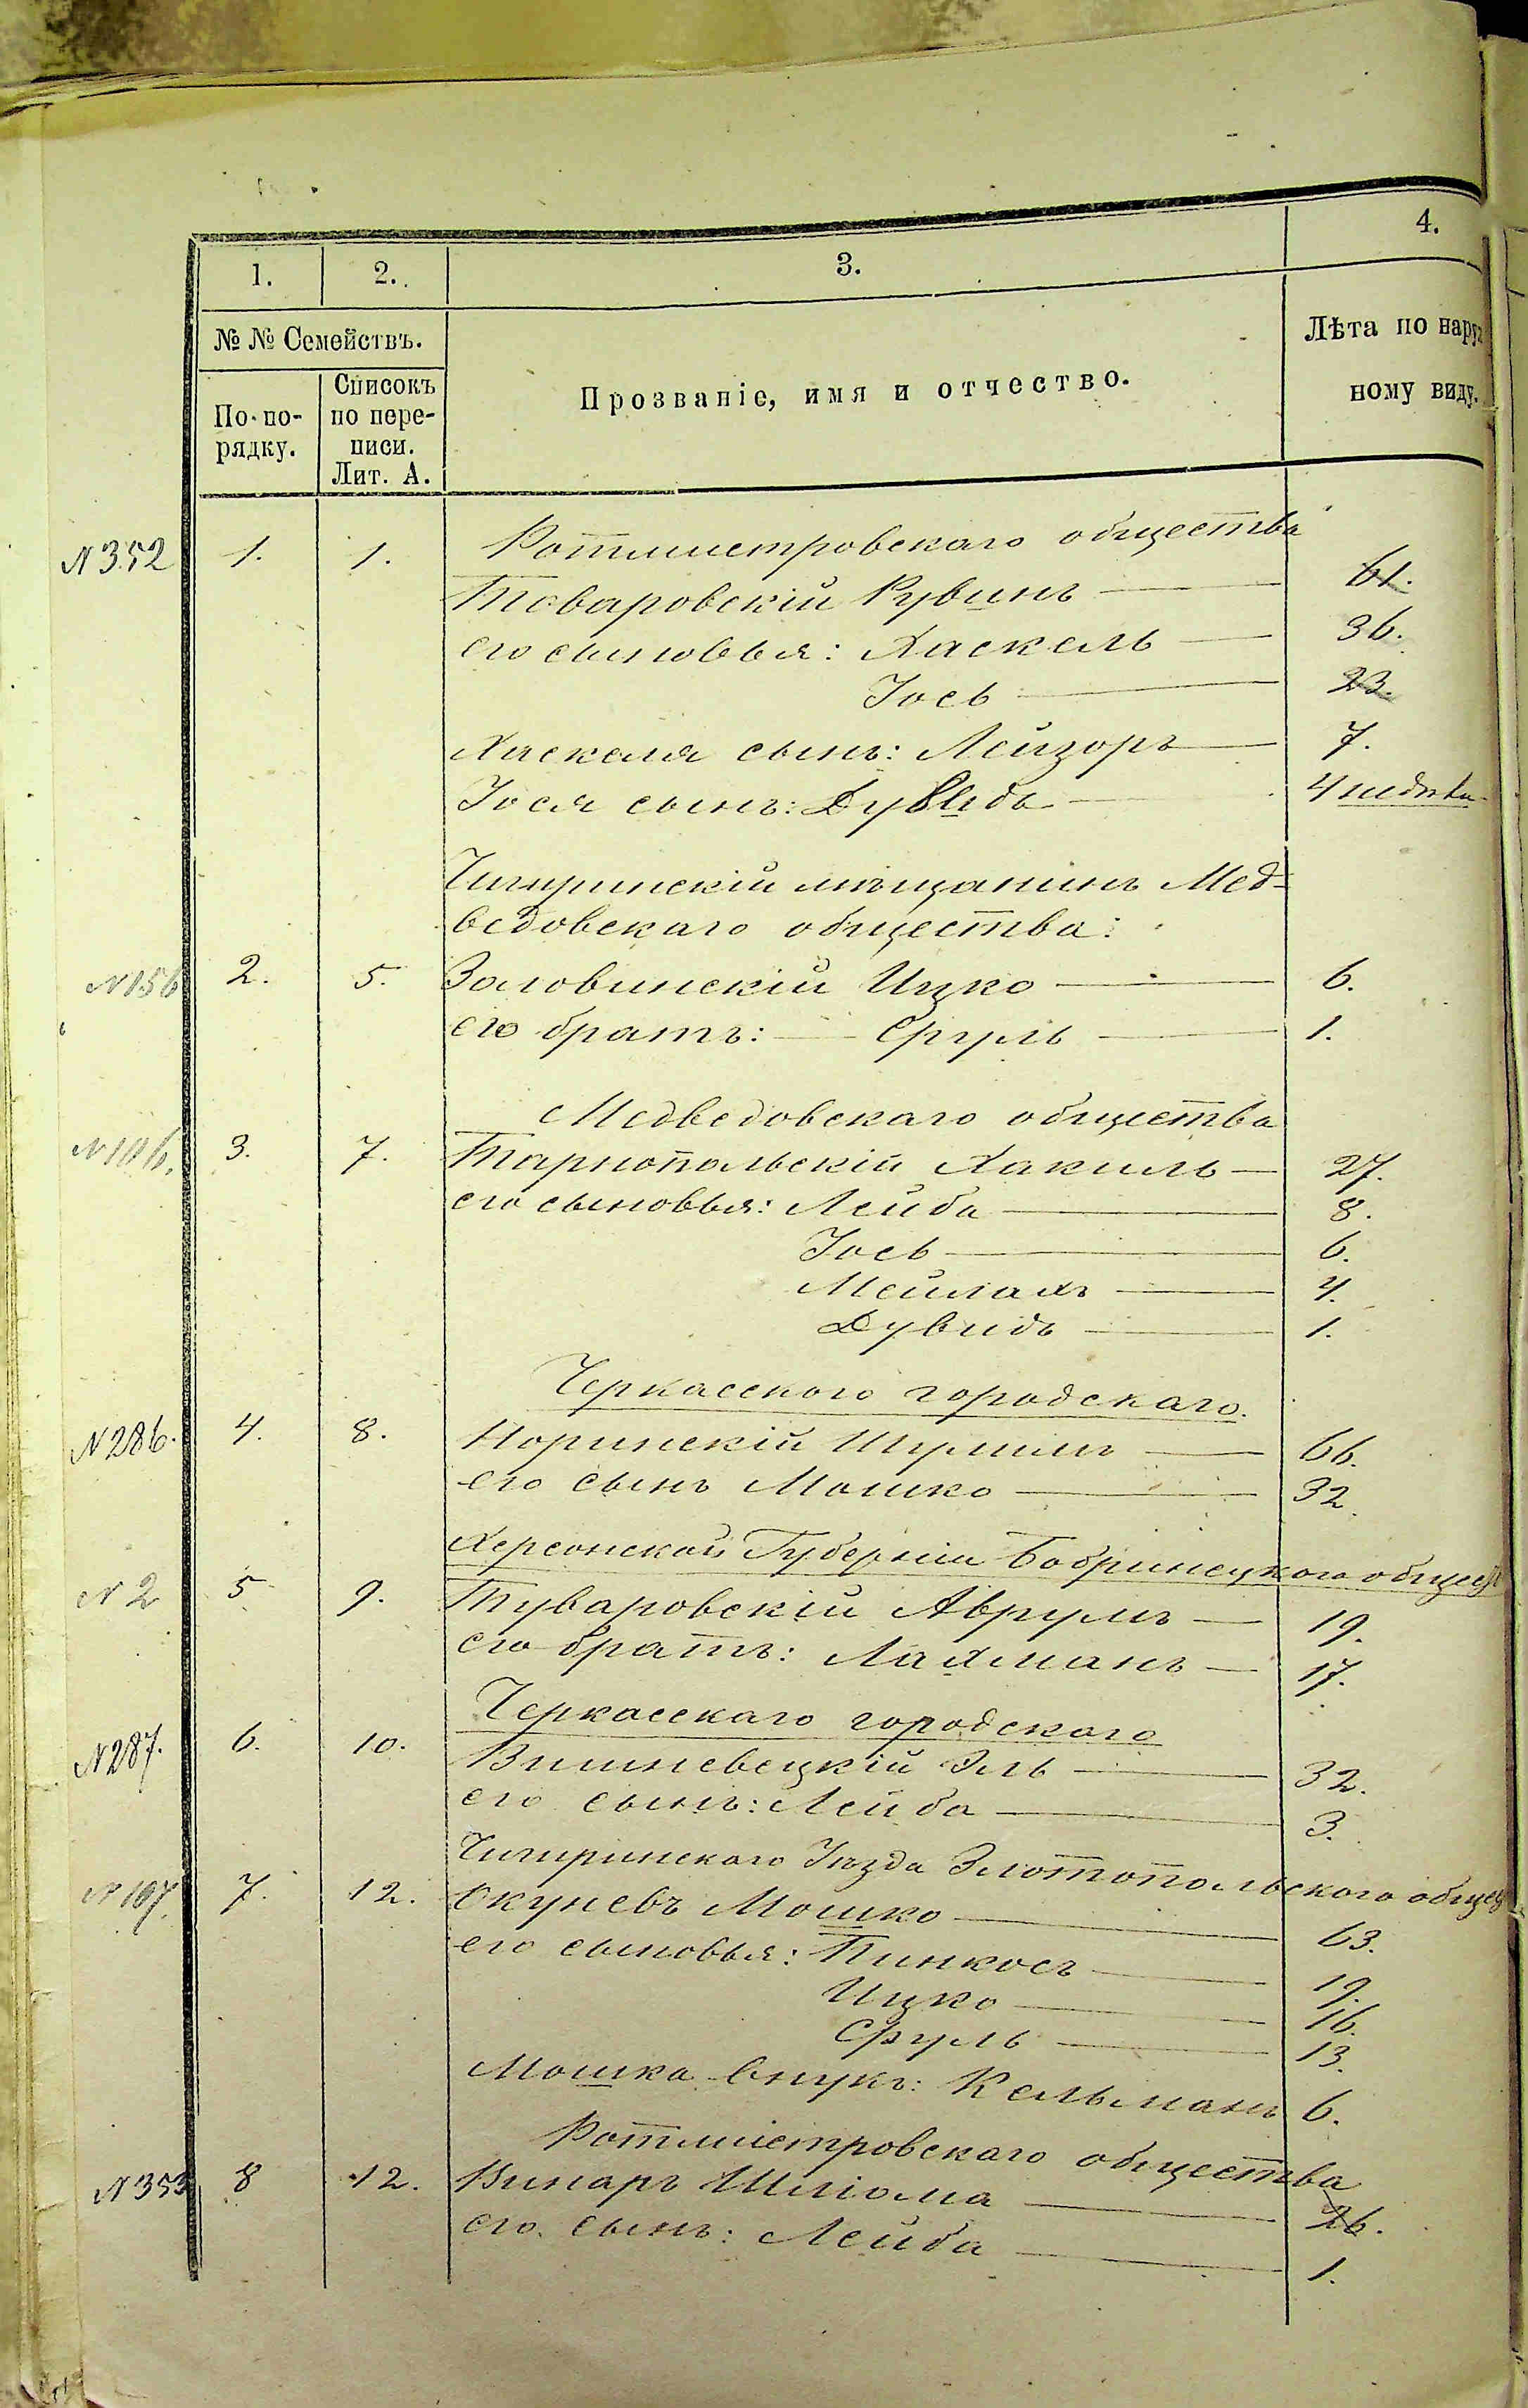 1. 2. 3. 4.
№ № Семействъ. Лѣта по наруж
По по- Списокъ Прозваніе, имя и отчество. ному виду.
рядку. по пере-
писи.
Лит. А.
N 352 1. 1. Ротмистровскаго общества
Товаровскій Рувинъ 61.
его сыновья: Хаскель 36.
Іось 23.
Хаскеля сынъ: Лейзоръ 7.
Іося сынъ: Дувидъ 4 недѣли
Чигиринскій мѣщанинъ Мед-
ведовскаго общества:
N 156 2. 5. Золовинскій Ицко 6.
его братъ: Сруль 1.
Медведовскаго общества
N 106. 3. 7. Тарнопольскій Хакиль 27.
его сыновья: Лейба 8.
Іось 6.
Мейлахъ 4.
Дувидъ 1.
Черкасского городскаго.
N 286. 4. 8. Норинскій Шулимъ 66.
его сынъ Мошко 32.
Херсонской Губерніи Бобринецкого общест
N 2 5 9. Туваровскій Аврумъ 19.
его братъ: Лахманъ 17.
Черкасскаго городского
N 287. 6. 10. Вишневецкій Эль 32.
его сынъ: Лейба 3.
Чигиринского Уѣзда Златопольского общес
N 107. 7. 12. Окуневъ Мошко 63.
его сыновья: Пинкосъ 19.
Ицко 16.
Сруль 13.
Мошка внукъ: Кельманъ 6.
Ротмистровскаго общества
N 353 8 12. Винаръ Шліома 26.
его сынъ: Лейба 1.